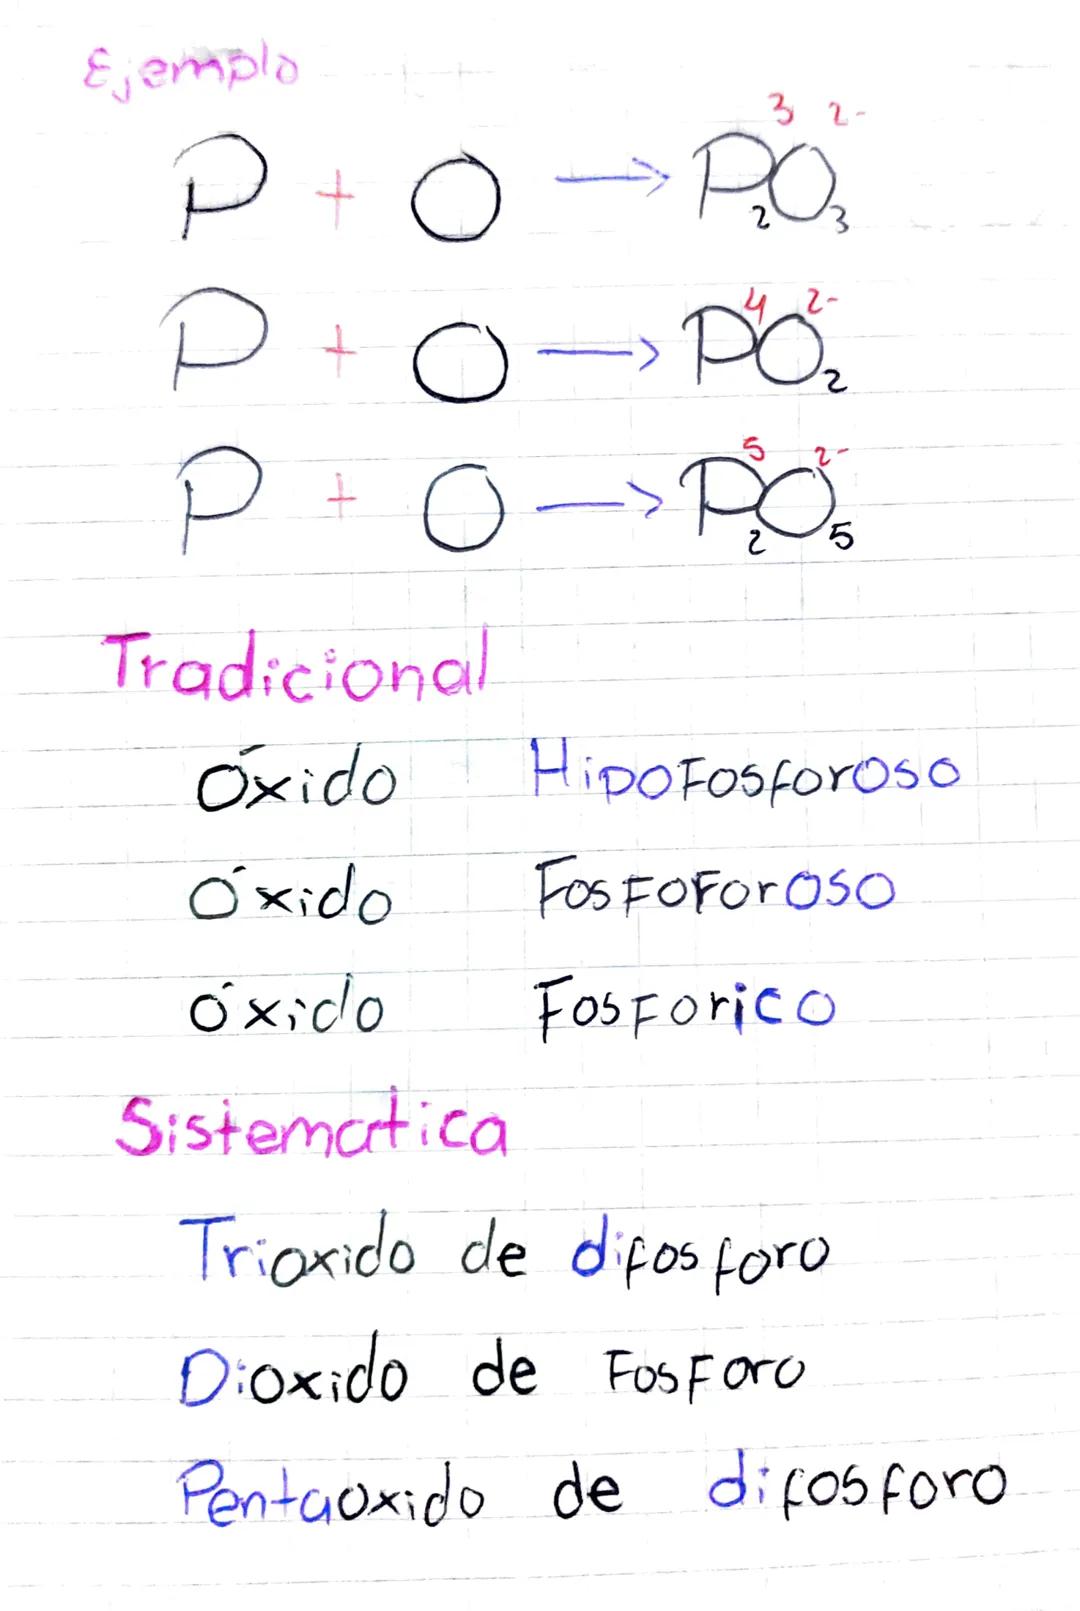 Ejemplo
P + O → P₂³O₃²⁻
P + O → P⁴O₂²⁻
P + O → P₂⁵O₅²⁻
Tradicional
Óxido HipoFosforoso
Óxido FosFoForoso
óxido FosForico
Sistematica
Trioxido de difosforo
Dioxido de FosForo
Pentaoxido de difosforo